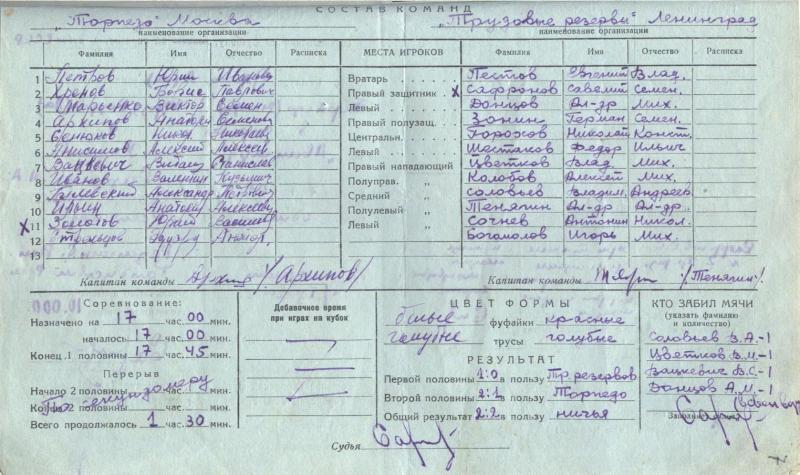 СОСТАВ КОМАНД
„Торпедо" Москва „Трудовые резервы" Ленинград
наименование организации наименование организации
Фамилия Имя Отчество Расписка МЕСТА ИГРОКОВ Фамилия Имя Отчество Расписка
1 Петров Юрий Иванов. Вратарь Пестов Евгений Влад.
2 Хренов Борис Павлович Правый защитник х Сафронов Савелий Семен.
3 Марьенко Виктор Семен. Левый „ Данцов Ал-др Мих.
4 Архипов Анатолий Семенович Правый полузащ. Зонин Герман Семен.
5 Сенюков Центральн. „ Горохов Николай Конст.
6 Анисимов Алексей Алексеев. Левый „ Шестаков Федор Ильич
7 Вацкевич Станислав. Правый нападающий Цветков Влад. Мих.
8 Иванов Валентин Кузьмич Полуправ. „ Колобов Алексей Мих.
9 Александр Средний „ Соловьев Владим. Андреев.
10 Ильин Анатолий Алексеев. Полулевый „ Тенягин Ал-др Ал-др.
х 11 Золотов Юрий Левый „ Сочнев Антонин Никол.
12 Стрельцов Эдуард Анат. Богомолов Игорь Мих.
13
Капитан команды /Архипов/ Капитан команды /Тенягин/.
Соревнование:
Назначено на 17 час. 00 мин.
началось 17 час. 00 мин.
Конец 1 половины 17 час. 45 мин.
Перерыв
Начало 2 половины час. мин.
По секундомеру
Конец 2 половины час. мин.
Всего продолжалось 1 час. 30 мин.
Добавочное время
при играх на кубок
ЦВЕТ ФОРМЫ
белые фуфайки красные
голубые трусы голубые
РЕЗУЛЬТАТ
Первой половины 1:0 в пользу Тр. резервов
Второй половины 2:1 в пользу Торпедо
Общий результат 2:2 в пользу ничья
Судья
КТО ЗАБИЛ МЯЧИ
(указать фамилию
и количество)
Соловьев В.А.-1
Цветков В.М.-1
Вацкевич В.С.-1
Данцов А.М.-1